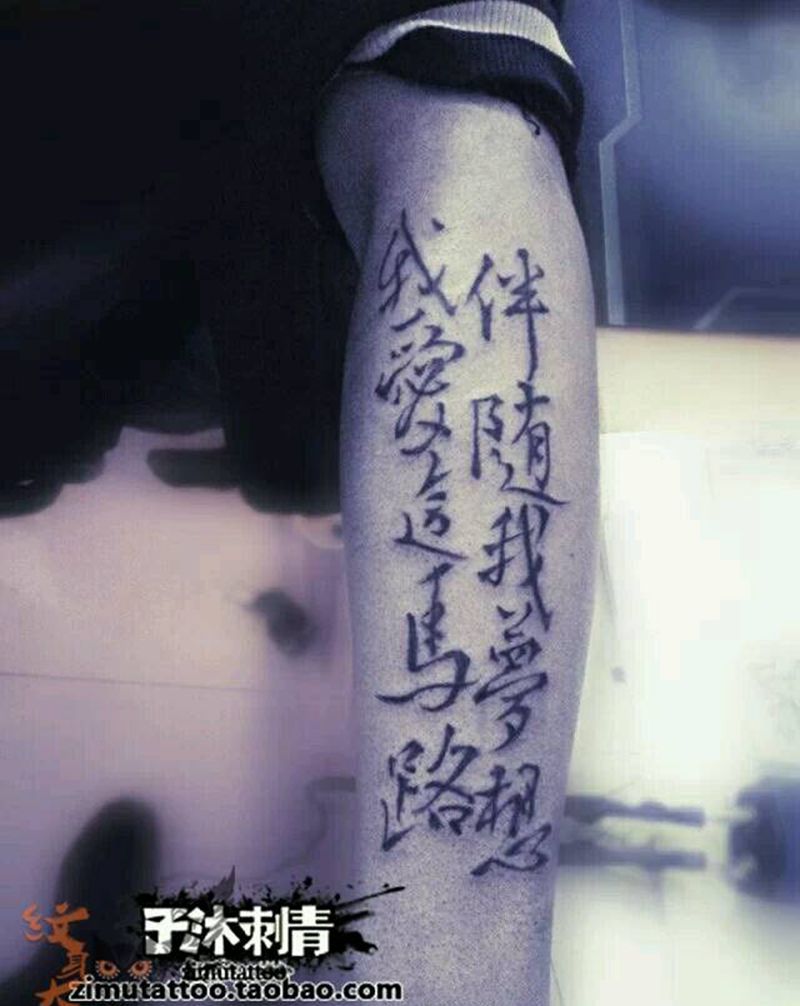 伴随我夢想
我愛這馬路
子沐刺青
zimutattoo
zimutattoo.taobao.com
纹身大